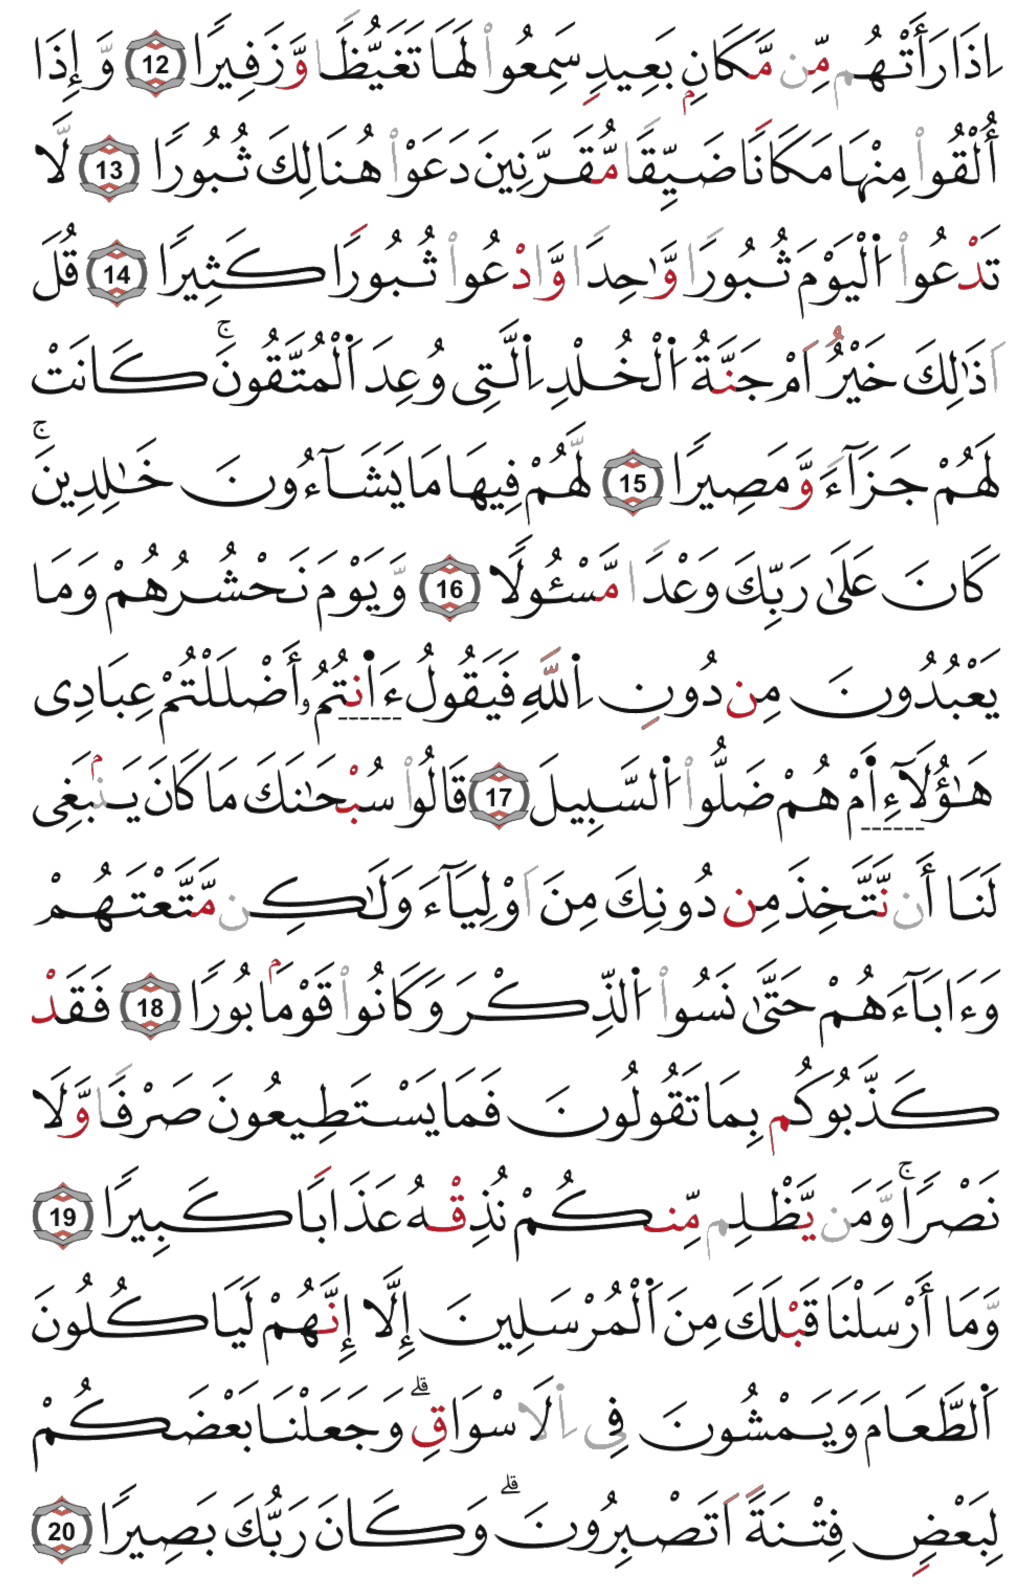 اِذَا رَأَتْهُم مِّن مَّكَانِۭ بَعِيدٍ سَمِعُوا۟ لَهَا تَغَيُّظًا وَّزَفِيرًا 12 وَّإِذَا
أُلْقُوا۟ مِنْهَا مَكَانًا ضَيِّقًا مُّقَرَّنِينَ دَعَوْا۟ هُنَالِكَ ثُبُورًا 13 لَّا
تَدْعُوا۟ اُ۬لْيَوْمَ ثُبُورًا وَّٰحِدًا وَّادْعُوا۟ ثُبُورًا كَثِيرًا 14 قُلَ
اَذَٰلِكَ خَيْرٌ اَمْ جَنَّةُ اُ۬لْخُلْدِ اِ۬لَّتِى وُعِدَ اَ۬لْمُتَّقُونَۚ كَانَتْ
لَهُمْ جَزَآءً وَّمَصِيرًا 15 لَّهُمْ فِيهَا مَا يَشَآءُونَ خَٰلِدِينَۚ
كَانَ عَلَىٰ رَبِّكَ وَعْدًا مَّسْـُٔولًا 16 وَّيَوْمَ نَحْشُرُهُمْ وَمَا
يَعْبُدُونَ مِن دُونِ اِ۬للَّهِ فَيَقُولُ ءَا۬نتُمُۥ أَضْلَلْتُمْ عِبَادِى
هَٰٓؤُلَآءِ أَ۬مْ هُمْ ضَلُّوا۟ اُ۬لسَّبِيلَ 17 قَالُوا۟ سُبْحَٰنَكَ مَا كَانَ يَنۢبَغِى
لَنَا أَن نَّتَّخِذَ مِن دُونِكَ مِنَ اَوْلِيَآءَ وَلَٰكِن مَّتَّعْتَهُمْ
وَءَابَآءَهُمْ حَتَّىٰ نَسُوا۟ اُ۬لذِّكْرَ وَكَانُوا۟ قَوْمَۢا بُورًا 18 فَقَدْ
كَذَّبُوكُم بِمَا تَقُولُونَ فَمَا يَسْتَطِيعُونَ صَرْفًا وَّلَا
نَصْرًاۚ وَّمَن يَّظْلِم مِّنكُمْ نُذِقْهُ عَذَابًا كَبِيرًا 19
وَّمَا أَرْسَلْنَا قَبْلَكَ مِنَ اَ۬لْمُرْسَلِينَ إِلَّا إِنَّهُمْ لَيَاكُلُونَ
اَ۬لطَّعَامَ وَيَمْشُونَ فِى اِ۬لَاسْوَاقِۗ وَجَعَلْنَا بَعْضَكُمْ
لِبَعْضٍ فِتْنَةً اَتَصْبِرُونَۗ وَكَانَ رَبُّكَ بَصِيرًا 20